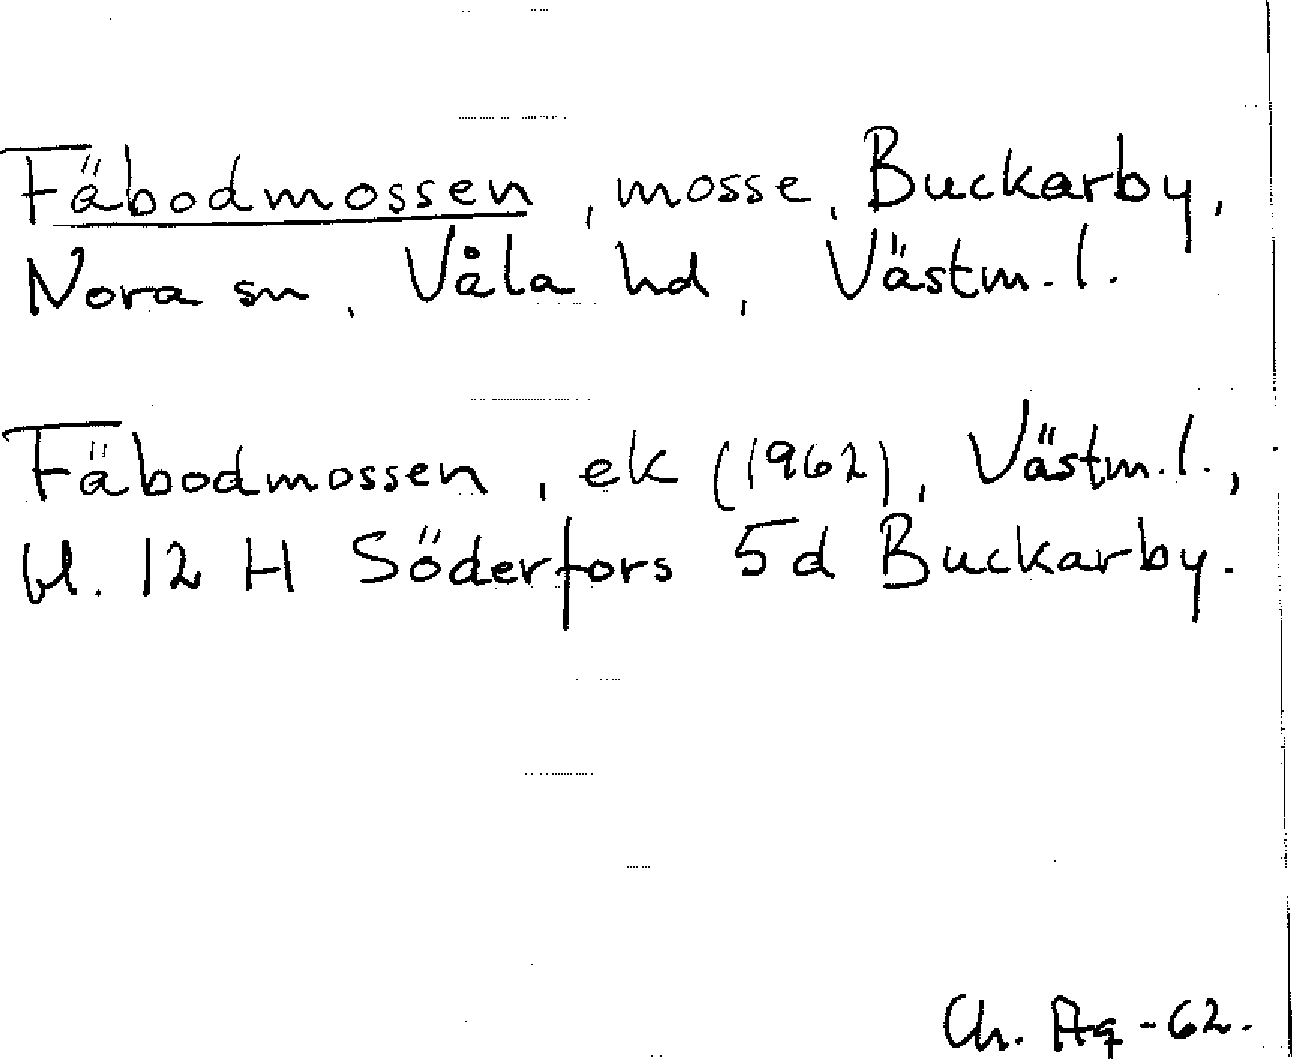 Fäbodmossen, mosse, Buckarby,
Nora sn, Våla hd, Västm. l.
Fäbodmossen, ek (1962), Västm. l.,
bl. 12 H Söderfors 5d Buckarby.
Ch. Ag -62.